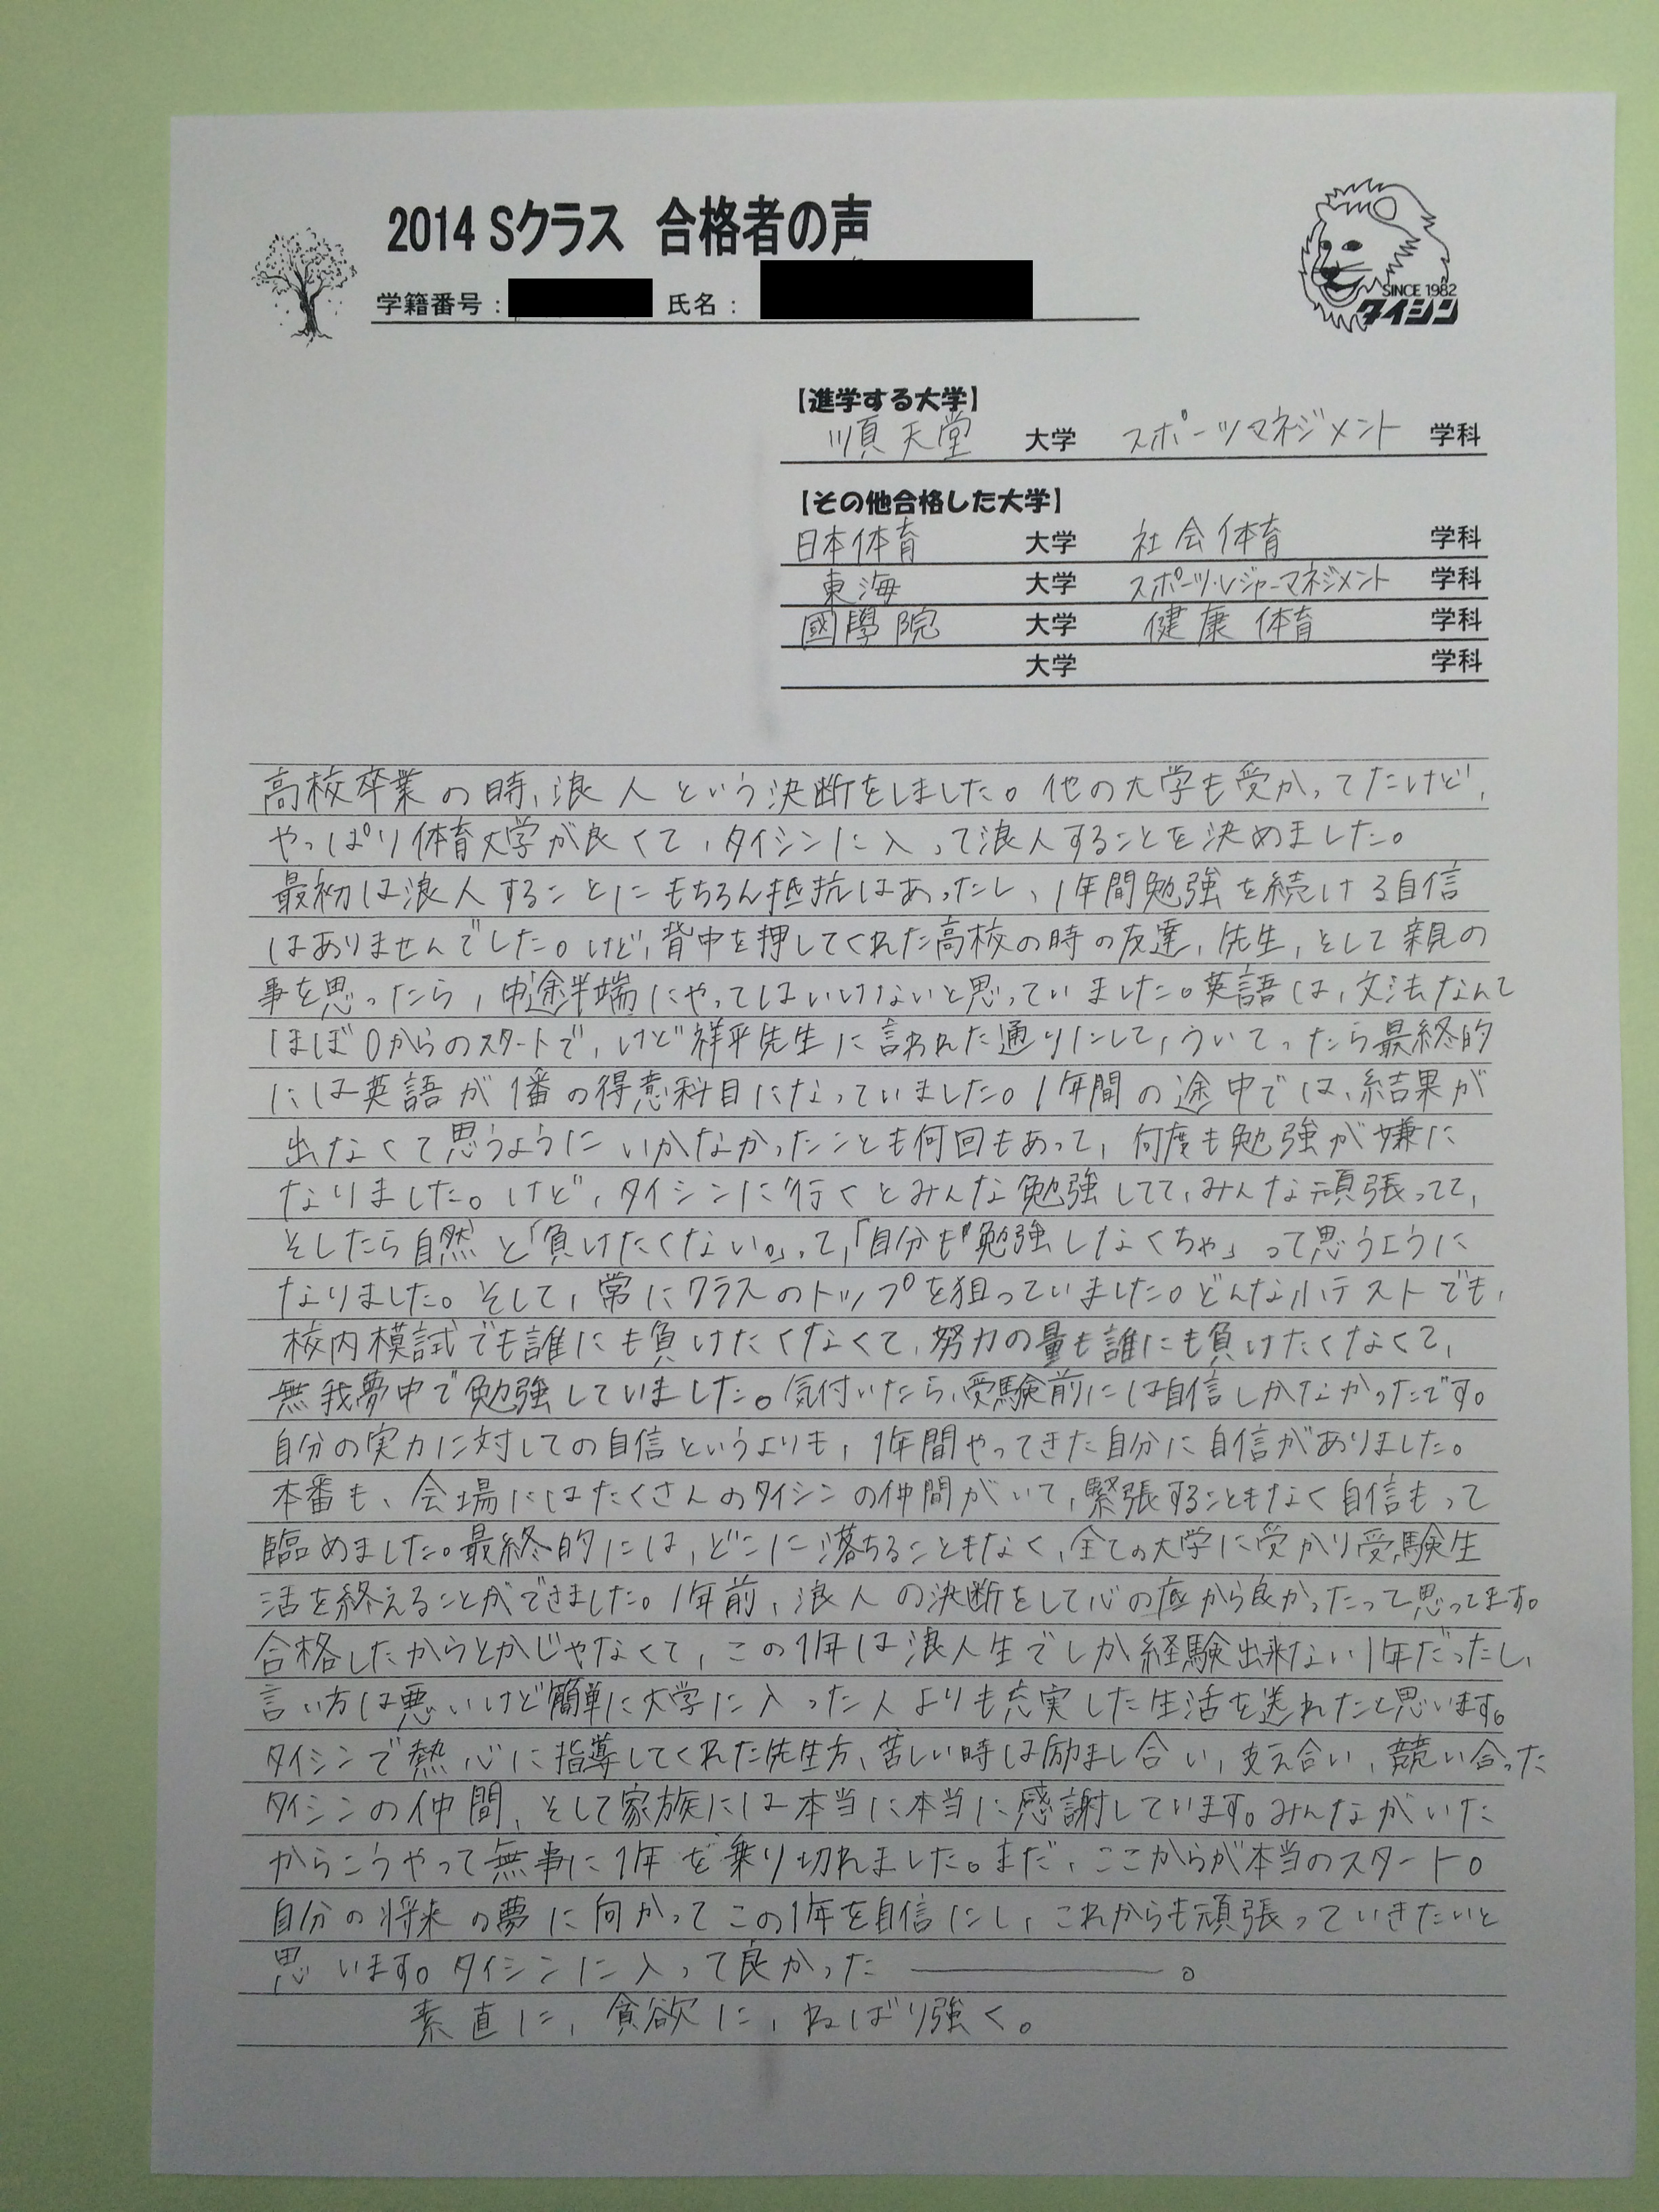 2014 Sクラス 合格者の声
学籍番号： 氏名：
SINCE 1982
タイシン
【進学する大学】
順天堂 大学 スポーツマネジメント 学科
【その他合格した大学】
日本体育 大学 社会体育 学科
東海 大学 スポーツ・レジャーマネジメント 学科
國學院 大学 健康体育 学科
大学 学科
高校卒業の時、浪人という決断をしました。他の大学も受かってたけど、
やっぱり体育大学が良くて、タイシンに入って浪人することを決めました。
最初は浪人することにもちろん抵抗はあったし、1年間勉強を続ける自信
はありませんでした。けど、背中を押してくれた高校の時の友達、先生、そして親の
事を思ったら、中途半端にやってはいけないと思っていました。英語は、文法なんて
ほぼ0からのスタートで、けど祥平先生に言われた通りにして、ついてったら最終的
には英語が1番の得意科目になっていました。1年間の途中では、結果が
出なくて思うようにいかなかったことも何回もあって、何度も勉強が嫌に
なりました。けど、タイシンに行くとみんな勉強してて、みんな頑張ってて、
そしたら自然と「負けたくない。」って、「自分も勉強しなくちゃ」って思うように
なりました。そして、常にクラスのトップを狙っていました。どんな小テストでも、
校内模試でも誰にも負けたくなくて、努力の量も誰にも負けたくなくて、
無我夢中で勉強していました。気付いたら、受験前には自信しかなかったです。
自分の実力に対しての自信というよりも、1年間やってきた自分に自信がありました。
本番も、会場にはたくさんのタイシンの仲間がいて、緊張することもなく自信もって
臨めました。最終的には、どこに落ちることもなく、全ての大学に受かり受験生
活を終えることができました。1年前、浪人の決断をして心の底から良かったって思ってます。
合格したからとかじゃなくて、この1年は浪人生でしか経験出来ない1年だったし、
言い方は悪いけど簡単に大学に入った人よりも充実した生活を送れたと思います。
タイシンで熱心に指導してくれた先生方、苦しい時は励まし合い、支え合い、競い合った
タイシンの仲間、そして家族には本当に本当に感謝しています。みんながいた
からこうやって無事に1年を乗り切れました。まだ、ここからが本当のスタート。
自分の将来の夢に向かってこの1年を自信にし、これからも頑張っていきたいと
思います。タイシンに入って良かった―――。
素直に、貪欲に、ねばり強く。